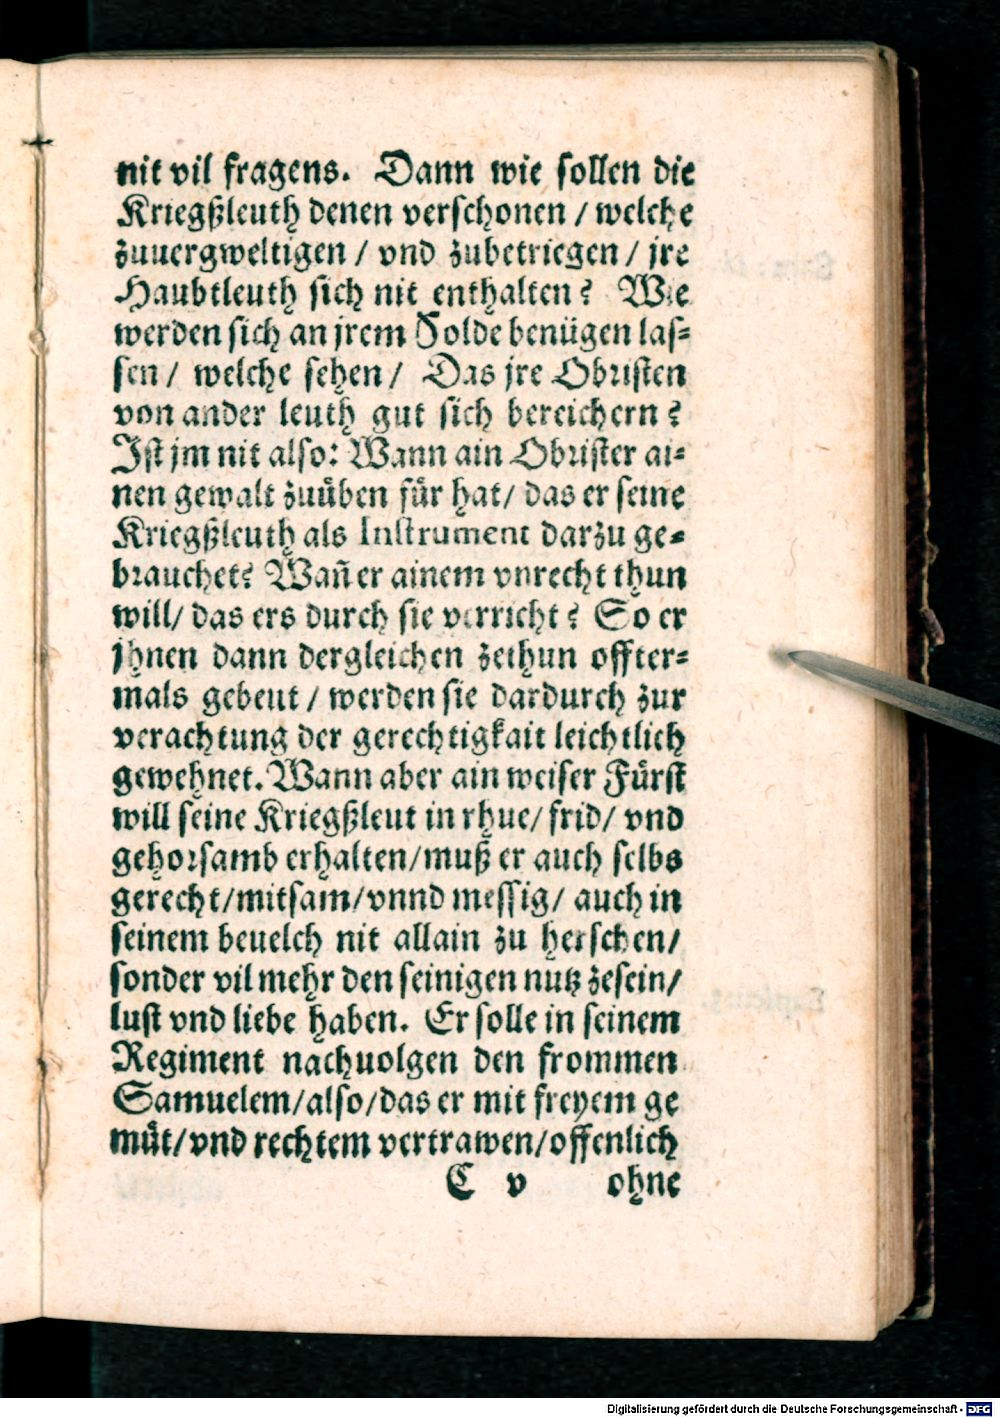 nit vil fragens. Dann wie sollen die
Kriegßleuth denen verschonen / welche
zuuergweltigen / vnd zubetriegen / jre
Haubtleuth sich nit enthalten? Wie
werden sich an jrem Solde benügen las-
sen / welche sehen / Das jre Obristen
von ander leuth gut sich bereichern?
Ist jm nit also: Wann ain Obrister ai-
nen gewalt zuüben für hat / das er seine
Kriegßleuth als Instrument darzu ge-
brauchet? Wañ er ainem vnrecht thun
will / das ers durch sie verricht? So er
jhnen dann dergleichen zethun offter-
mals gebeut / werden sie dardurch zur
verachtung der gerechtigkait leichtlich
gewehnet. Wann aber ain weiser Fürst
will seine Kriegßleut in rhue / frid / vnd
gehorsamb erhalten / muß er auch selbs
gerecht / mitsam / vnnd messig / auch in
seinem beuelch nit allain zu herschen /
sonder vil mehr den seinigen nutz zesein /
lust vnd liebe haben. Er solle in seinem
Regiment nachuolgen den frommen
Samuelem / also / das er mit freyem ge
müt / vnd rechtem vertrawen / offenlich
C v ohne
Digitalisierung gefördert durch die Deutsche Forschungsgemeinschaft - DFG